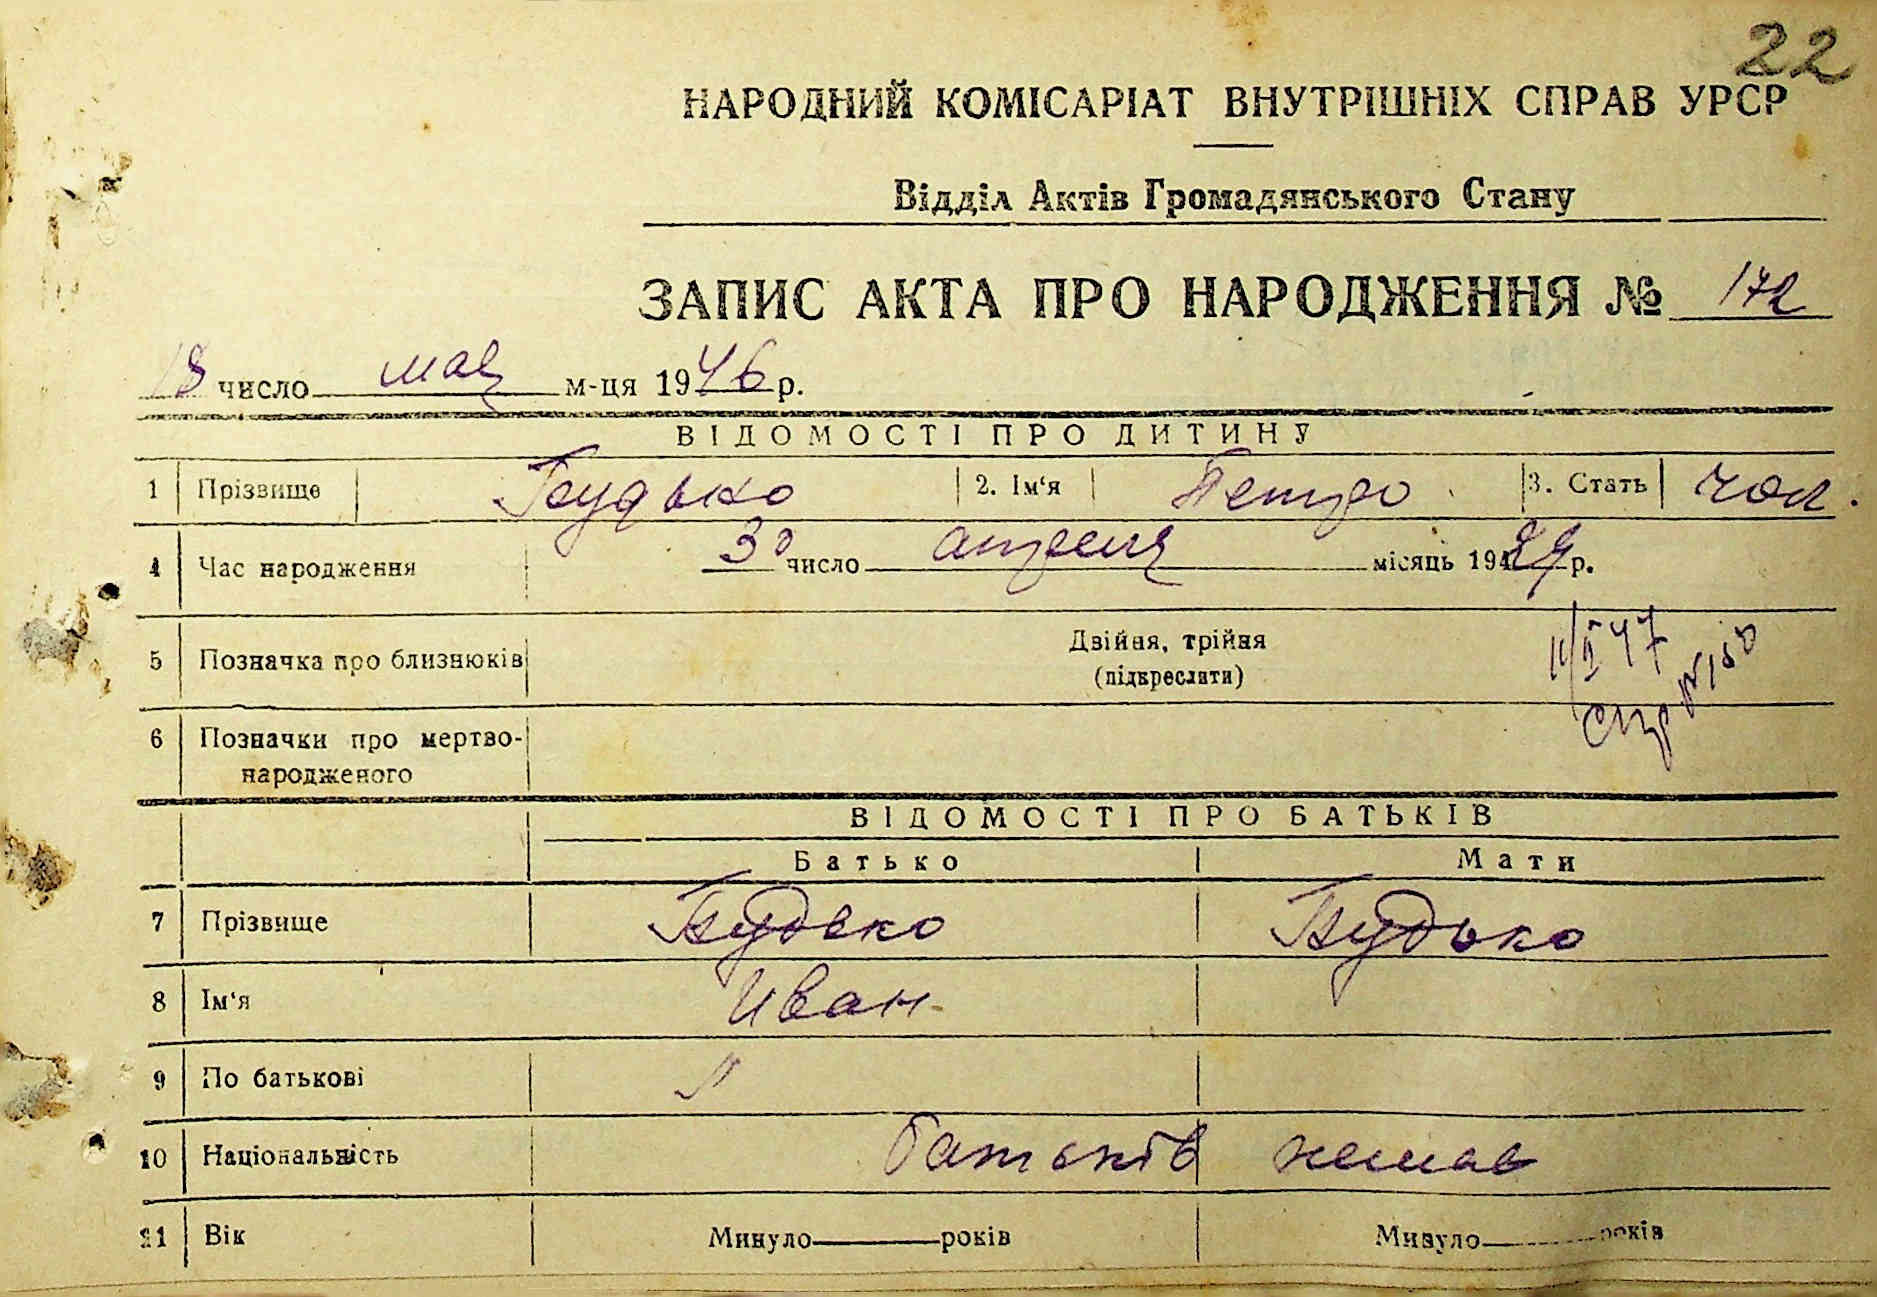 22
НАРОДНИЙ КОМІСАРІАТ ВНУТРІШНІХ СПРАВ УРСР
Відділ Актів Громадянського Стану
ЗАПИС АКТА ПРО НАРОДЖЕННЯ № 172
18 число мая м-ця 1946 р.
ВІДОМОСТІ ПРО ДИТИНУ
1 Прізвище Будько 2. Ім'я Петро 3. Стать чол.
4 Час народження 30 число апреля місяць 19 29 р.
5 Позначка про близнюків Двійня, трійня
(підкреслити)
11/II 47
6 Позначки про мертво-
народженого
ВІДОМОСТІ ПРО БАТЬКІВ
Батько Мати
7 Прізвище Будько Будько
8 Ім'я Иван
9 По батькові
10 Національність батьків немає
11 Вік Минуло років Минуло років